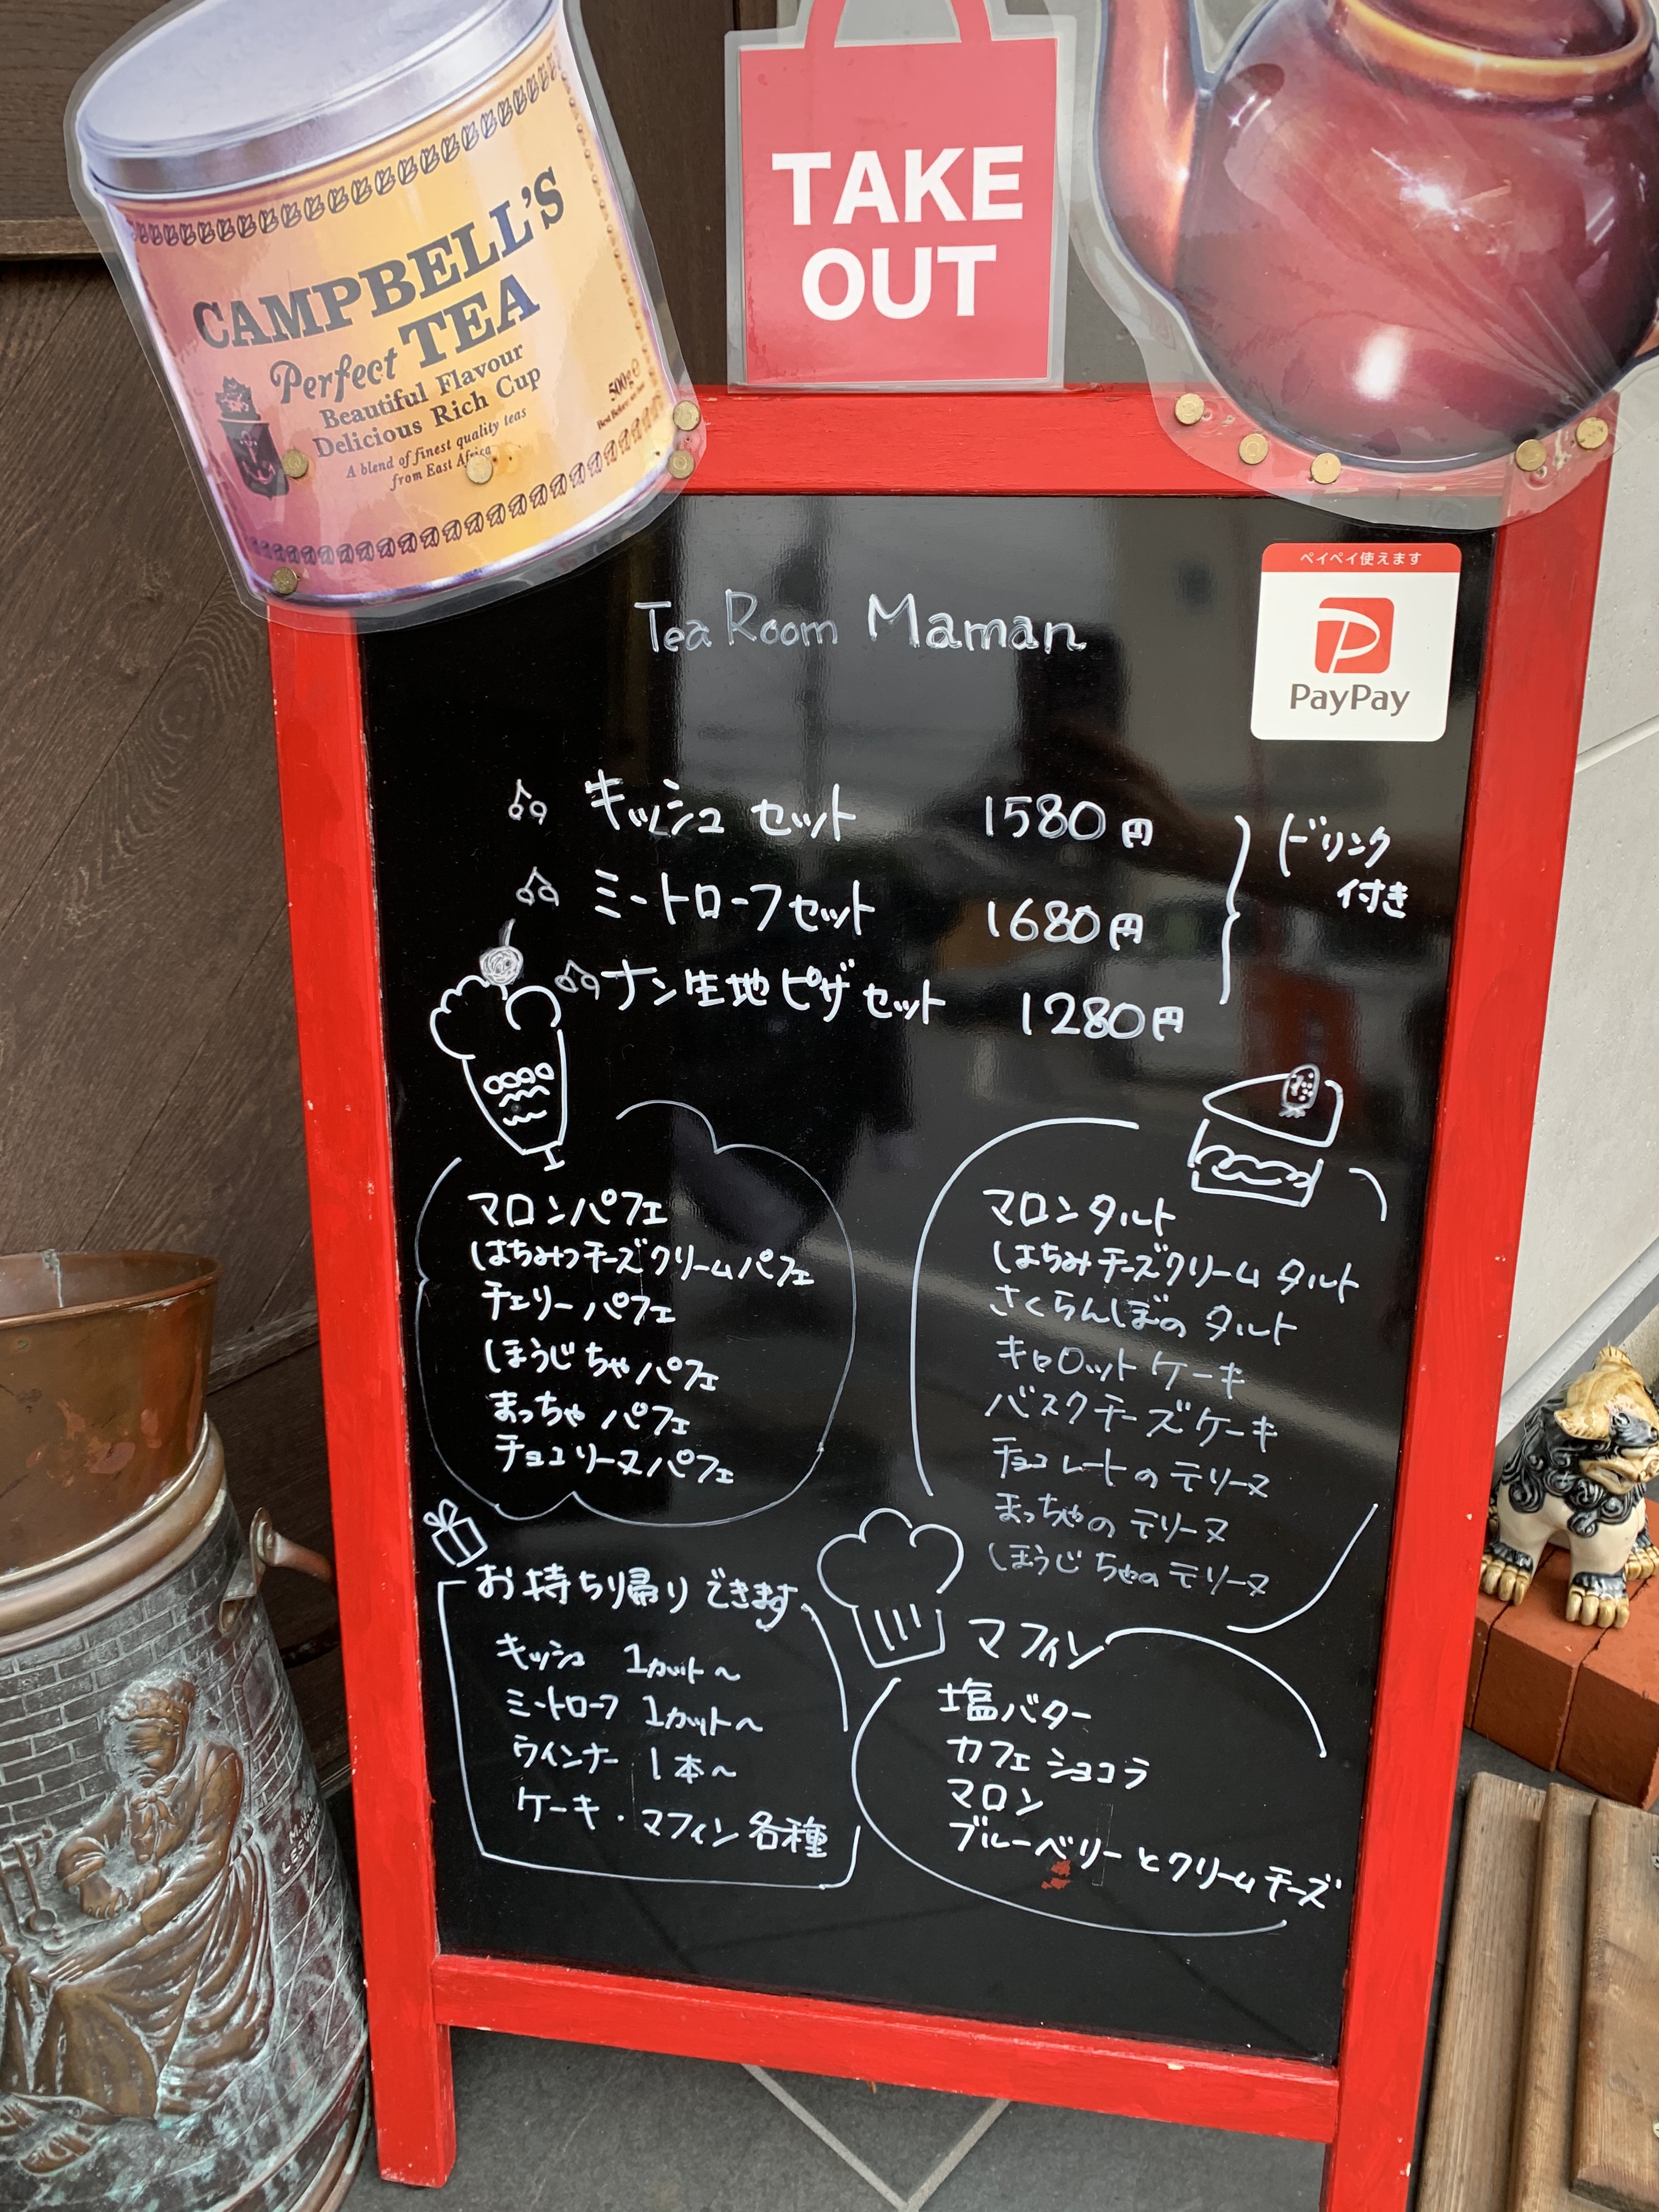 CAMPBELL'S
Perfect TEA
Beautiful Flavour
Delicious Rich Cup
A blend of finest quality teas
from East Africa
500g e
TAKE
OUT
ペイペイ使えます
PayPay
Tea Room Maman
キッシュ セット 1580円
ミートローフセット 1680円
ナン生地ピザセット 1280円
ドリンク
付き
マロンパフェ
はちみつチーズクリームパフェ
チェリーパフェ
ほうじちゃパフェ
まっちゃパフェ
チョコリーヌパフェ
マロンタルト
はちみチーズクリームタルト
さくらんぼのタルト
キャロットケーキ
バスクチーズケーキ
チョコレートのテリーヌ
まっちゃのテリーヌ
ほうじちゃのテリーヌ
お持ちり帰りできます
キッシュ 1カット〜
ミートローフ 1カット〜
ウインナー 1本〜
ケーキ・マフィン各種
マフィン
塩バター
カフェショコラ
マロン
ブルーベリーとクリームチーズ